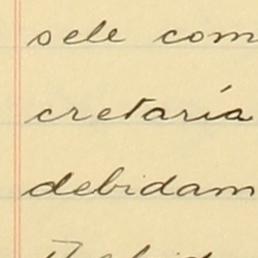 sele com
cretaría
debidam